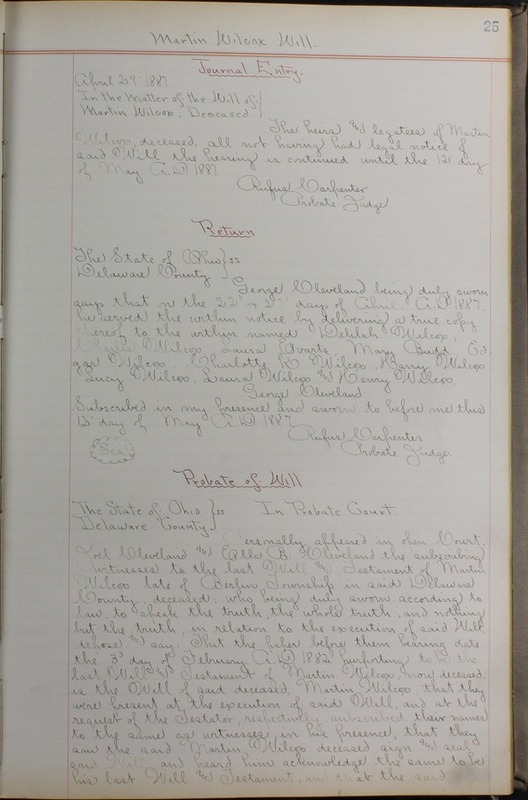 25
Martin Wilcox Will.
Journal Entry.
April 29th 1887
In the Matter of the Will of }
Martin Wilcox, Deceased }
The heirs and legatees of Martin
Wilcox, deceased, all not having had legal notice of
said Will, the hearing is continued until the 12th day
of May A.D. 1887
Rufus Carpenter
Probate Judge
Return
The State of Ohio } ss
Delaware County }
George Cleveland being duly sworn
says that on the 22d & 27th days of April A.D. 1887,
he served the within notice by delivering a true copy
thereof to the within named Delilah Wilcox,
Wilcox, Laura Swartz, Mary Budd, Ed
gar Wilcox, Charlotte Wilcox, Harry Wilcox
Lucy Wilcox, Laura Wilcox and Henry Wilcox.
George Cleveland
Subscribed in my presence and sworn to before me this
12th day of May A.D. 1887
Rufus Carpenter
Probate Judge.
Seal
Probate of Will
The State of Ohio } ss In Probate Court
Delaware County }
Personally appeared in open Court,
Cleveland and Cleveland the subscribing
witnesses to the last Will and Testament of Martin
Wilcox late of Berlin Township in said Delaware
County, deceased, who being duly sworn according to
law, to speak the truth, the whole truth, and nothing
but the truth, in relation to the execution of said Will
depose and say: That the paper before them bearing date
the 3d day of February A.D. 1882 purporting to be the
last Will and Testament of Martin Wilcox, now deceased,
is the Will of said deceased, Martin Wilcox, that they
were present at the execution of said Will, and at the
request of the Testator, respectively subscribed their names
to the same as witnesses, in his presence, that they
saw the said Martin Wilcox deceased sign and seal
said Will, and heard him acknowledge the same to be
his last Will and Testament, and that the said